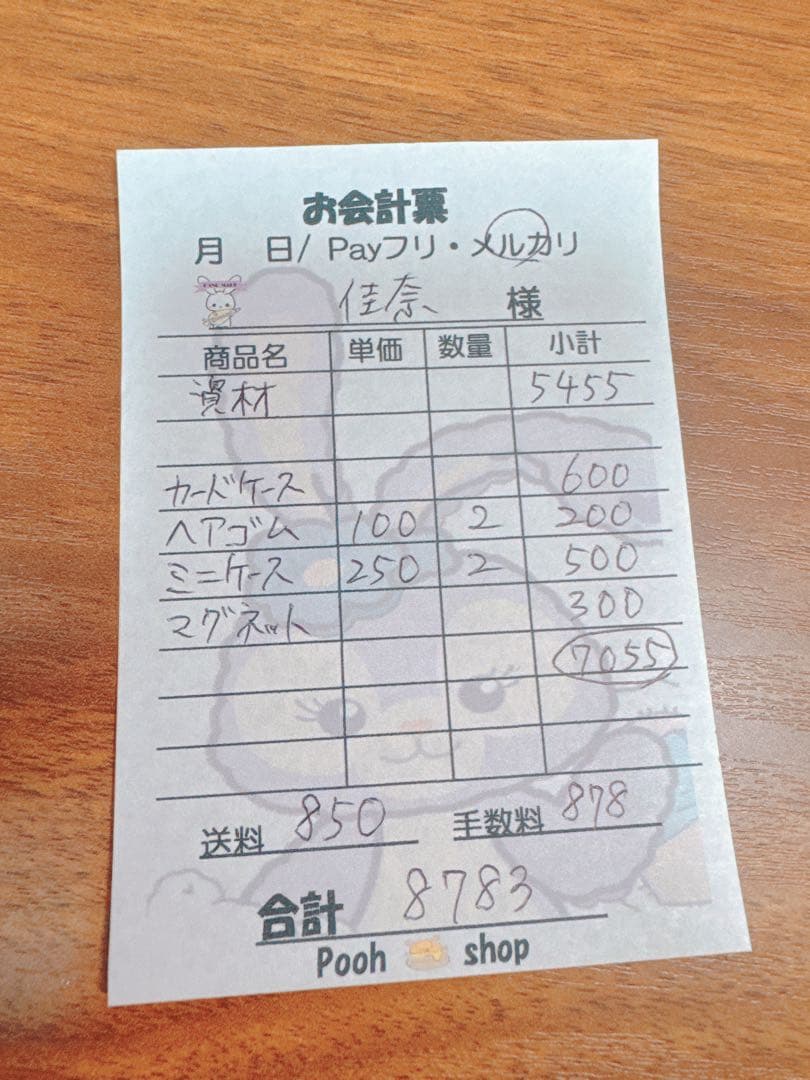 お会計票
月 日/ Payフリ・メルカリ
佳奈 様
商品名 単価 数量 小計
資材 5455
カードケース 600
ヘアゴム 100 2 200
ミニケース 250 2 500
マグネット 300
7055
送料 850 手数料 878
合計 8783
Pooh shop